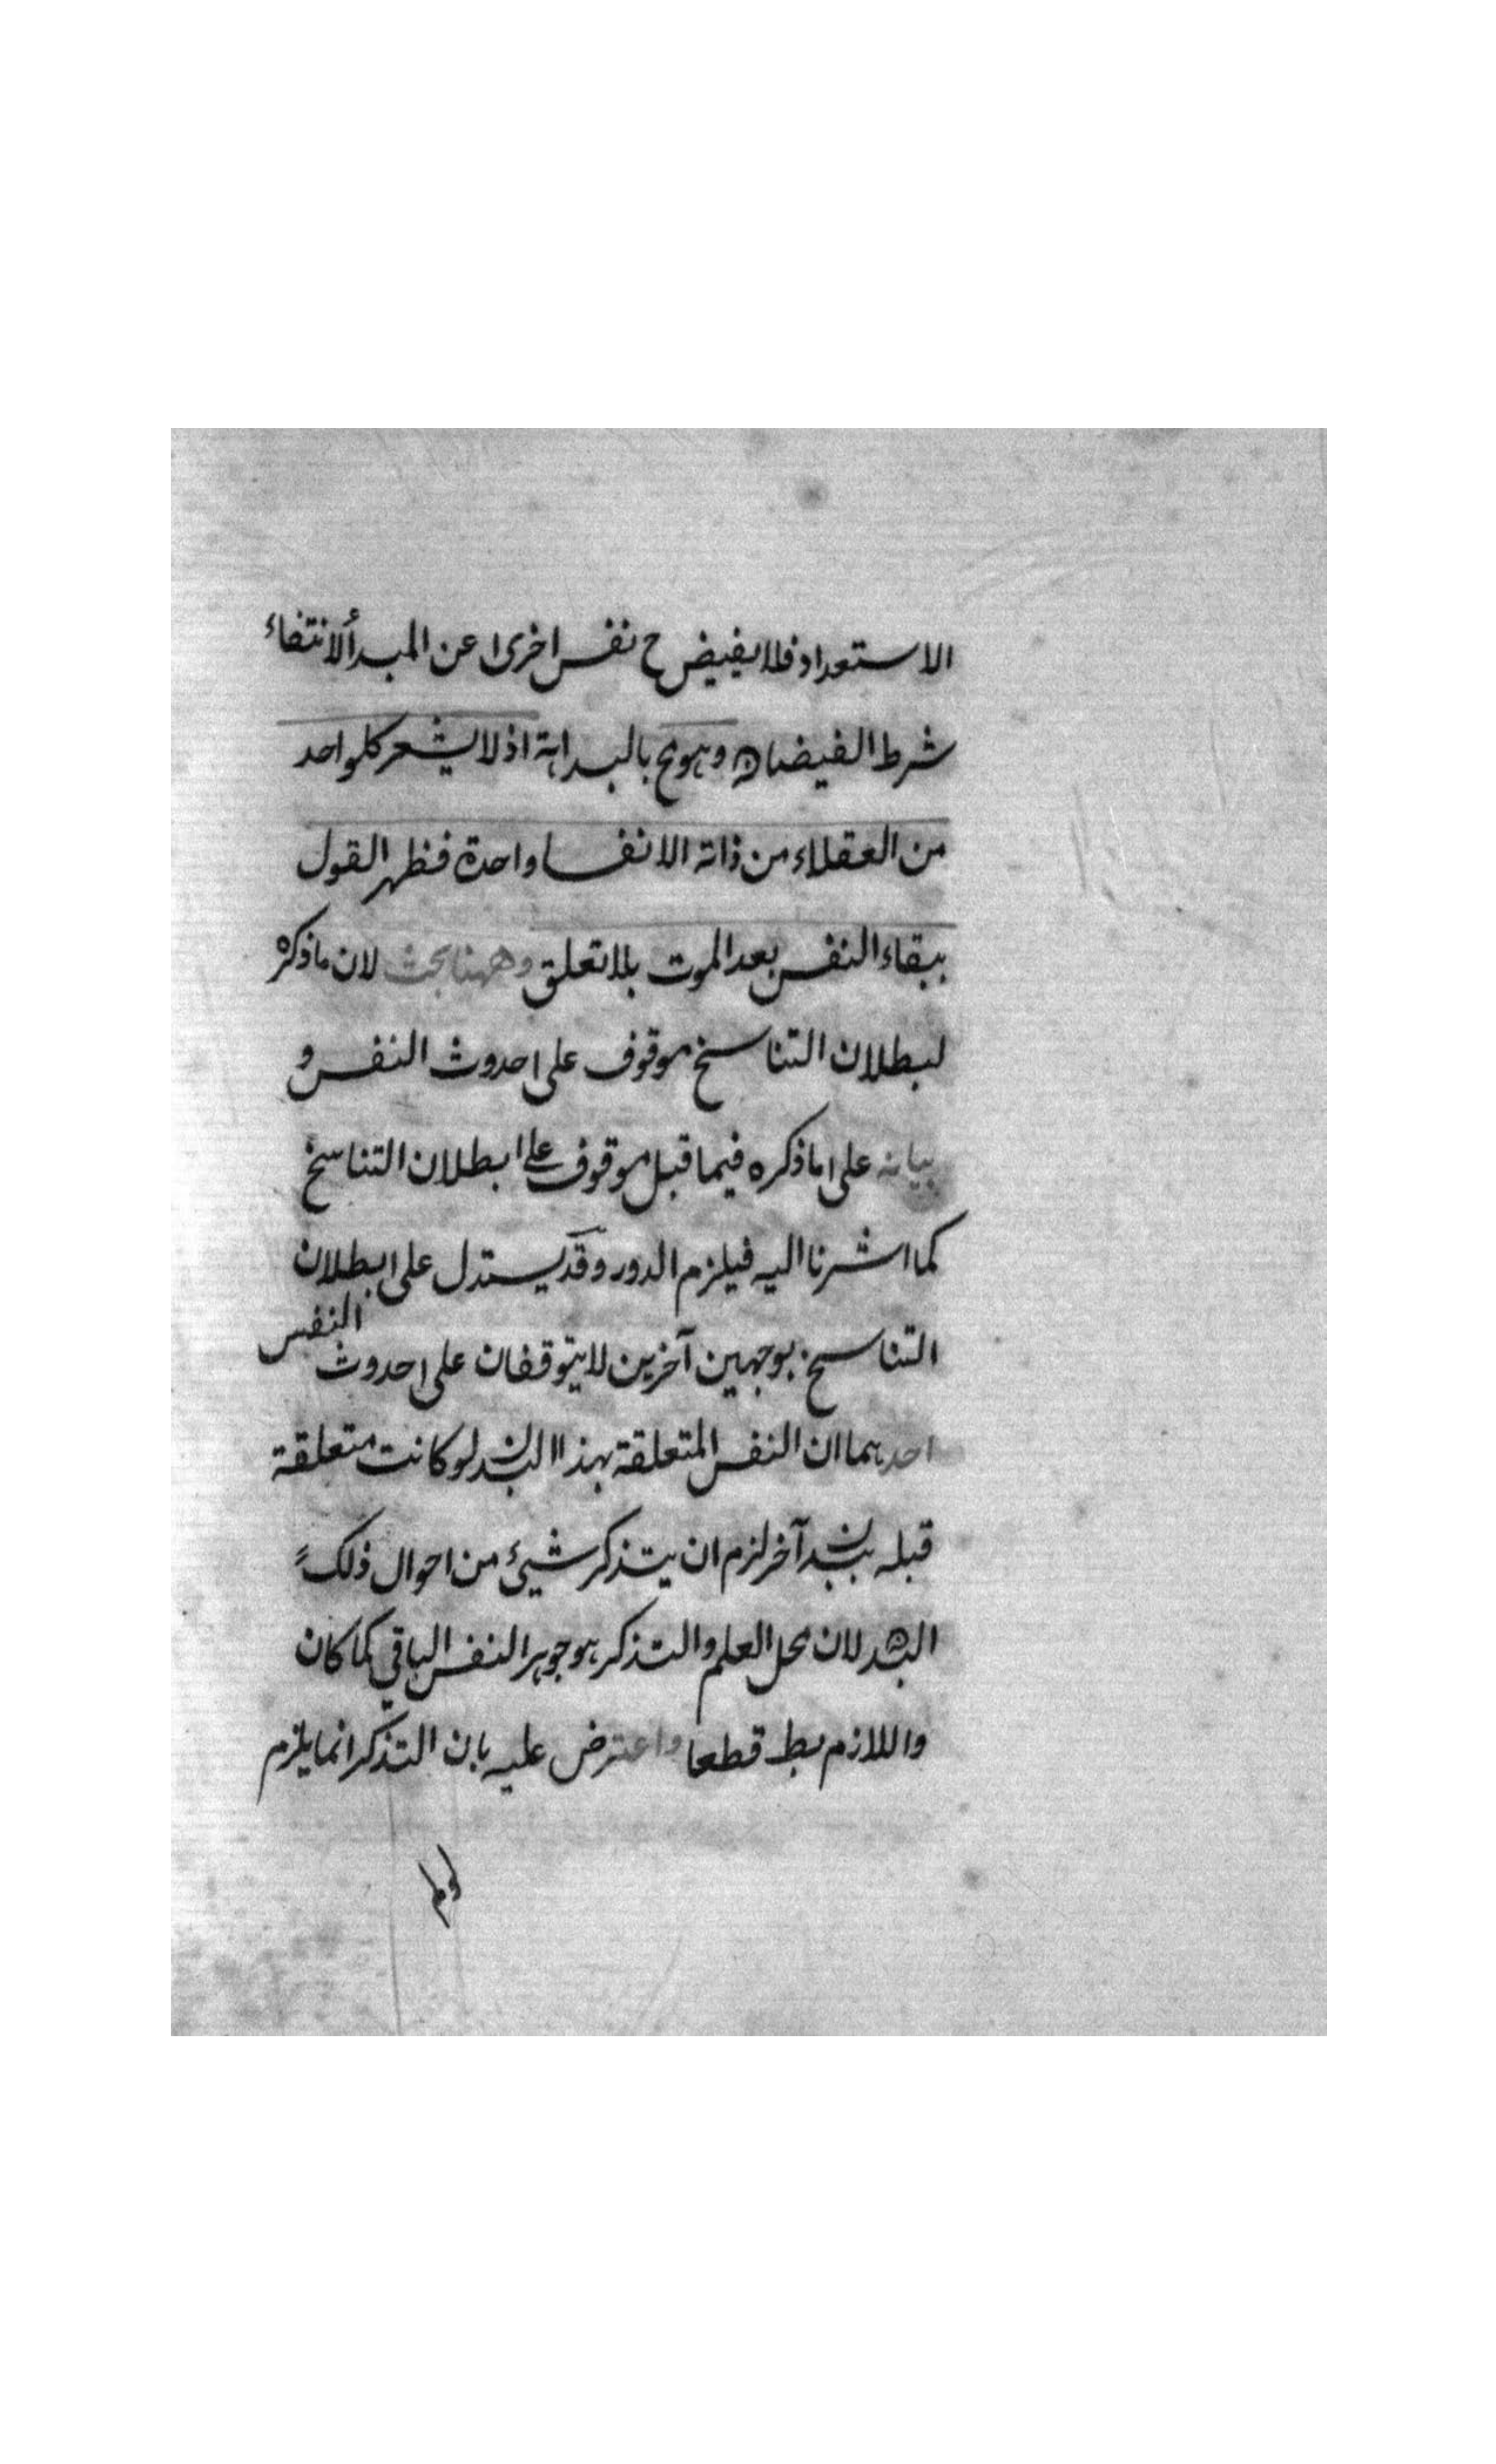 الاستعداد فلا يفيض ح نفس اخرى عن المبدأ لانتفاء
شرط الفيضان وهو مح بالبداهة اذ لا يشعر كلواحد
من العقلاء من ذاته الا نفسا واحدة فظهر القول
ببقاء النفس بعد الموت بلا تعلق وههنا بحث لان ما ذكره
لبطلان التناسخ موقوف على حدوث النفس و
بيانه على ما ذكره فيما قبل موقوف على ابطلان التناسخ
كما اشرنا اليه فيلزم الدور وقد يستدل على بطلان
التناسخ بوجهين آخرين لا يتوقفان على حدوث النفس
احدهما ان النفس المتعلقة بهذا البدن لو كانت متعلقة
قبله ببدن آخر لزم ان يتذكر شيئ من احوال ذلك
البدن لان محل العلم والتذكر هو جوهر النفس الباقي كما كان
واللازم بط قطعا واعترض عليه بان التذكر انما يلزم